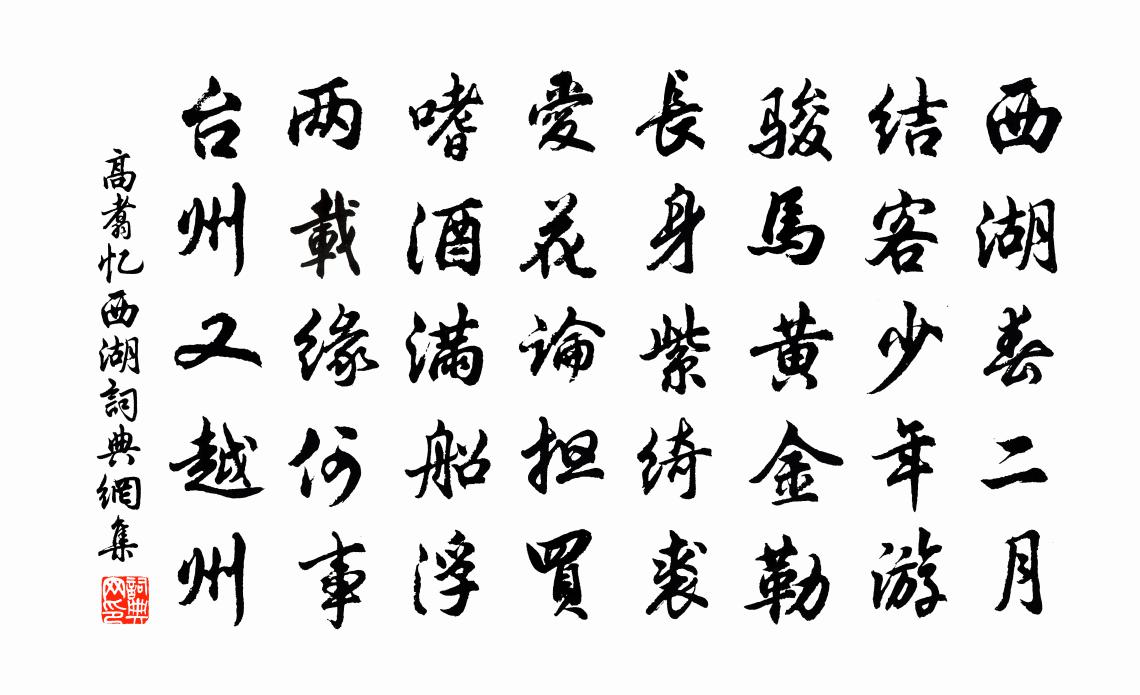 西湖春二月
结客少年游
骏馬黄金勒
長身紫绮裘
愛花論担買
嗜酒滿船浮
两載缘何事
台州又越州
高翥忆西湖詞典網集
詞典网印